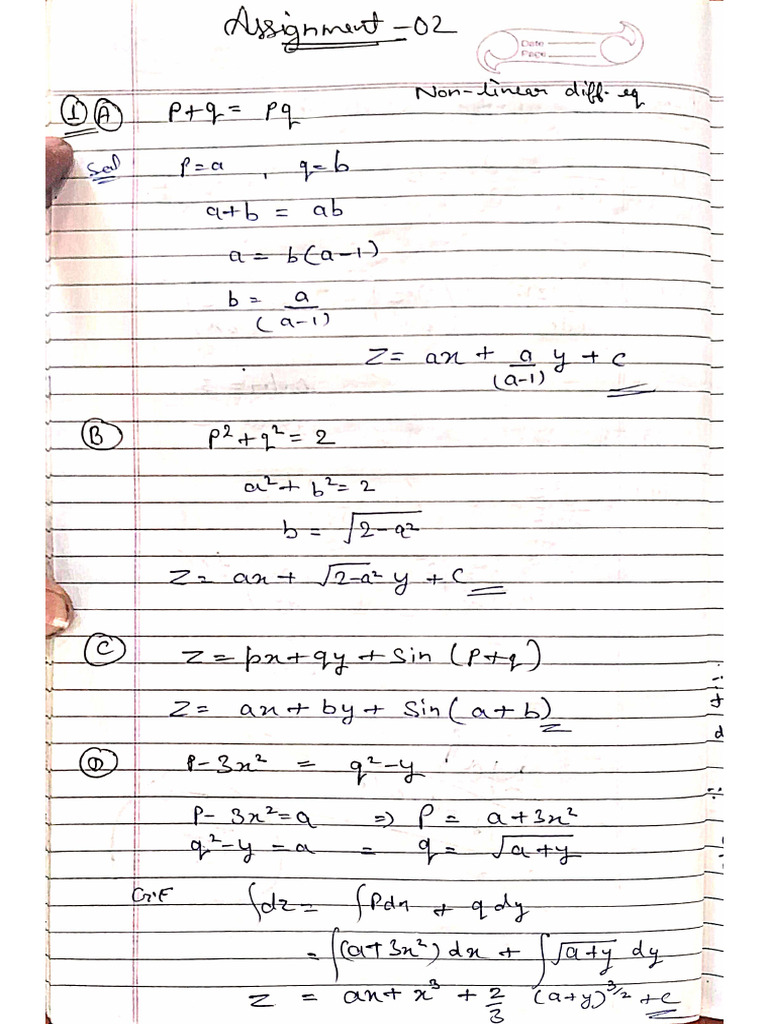 Assignment -02
Date
Page
Non-linear diff. eq
① Ⓐ p+q = pq
Sol p=a , q=b
a+b = ab
a = b(a-1)
b = a/(a-1)
Z = ax + a/(a-1) y + c
Ⓑ p²+q² = 2
a²+ b² = 2
b = √(2-a²)
Z = ax + √(2-a²) y + c
Ⓒ z = px+qy+sin (p+q)
Z = ax+by+ sin(a+b)
Ⓓ p-3x² = q²-y
p- 3x² = a => p = a+3x²
q²-y = a = q = √(a+y)
∫dz = ∫pdx + q dy
= ∫(a+3x²) dx + ∫√(a+y) dy
z = ax+x³ + 2/3 (a+y)^3/2 +c